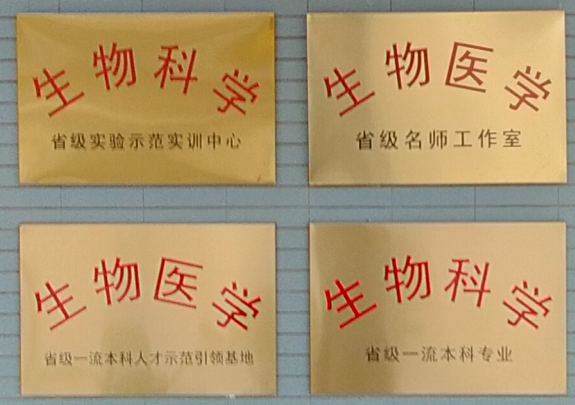 生物科学
省级实验示范实训中心
生物医学
省级名师工作室
生物医学
省级一流本科人才示范引领基地
生物科学
省级一流本科专业